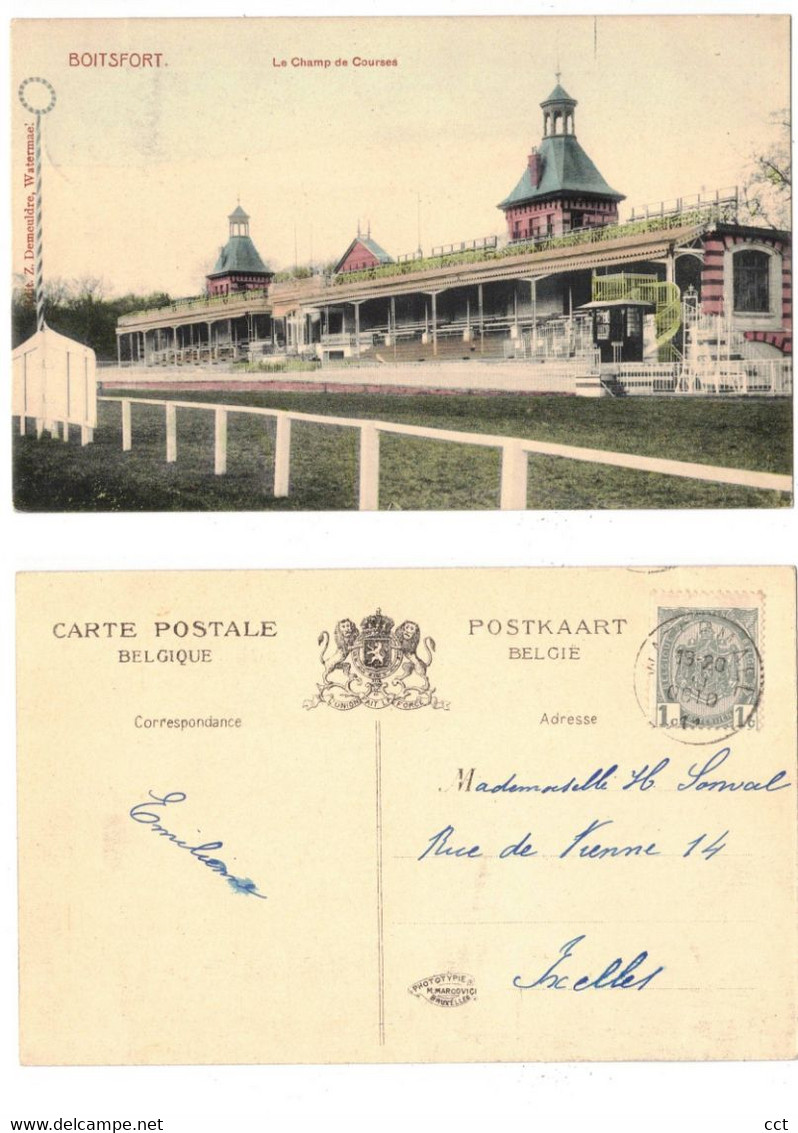 BOITSFORT.
Le Champ de Courses
Edit. Z. Demeuldre, Watermael
CARTE POSTALE
BELGIQUE
POSTKAART
BELGIË
L'UNION FAIT LA FORCE
Correspondance
Adresse
19-20
OCTO
1c 1c
Mademoiselle H. Sonval
Emilienne
Rue de Vienne 14
Ixelles
PHOTOTYPIE
M. MARCOVICI
BRUXELLES
Delcampe.net
cct